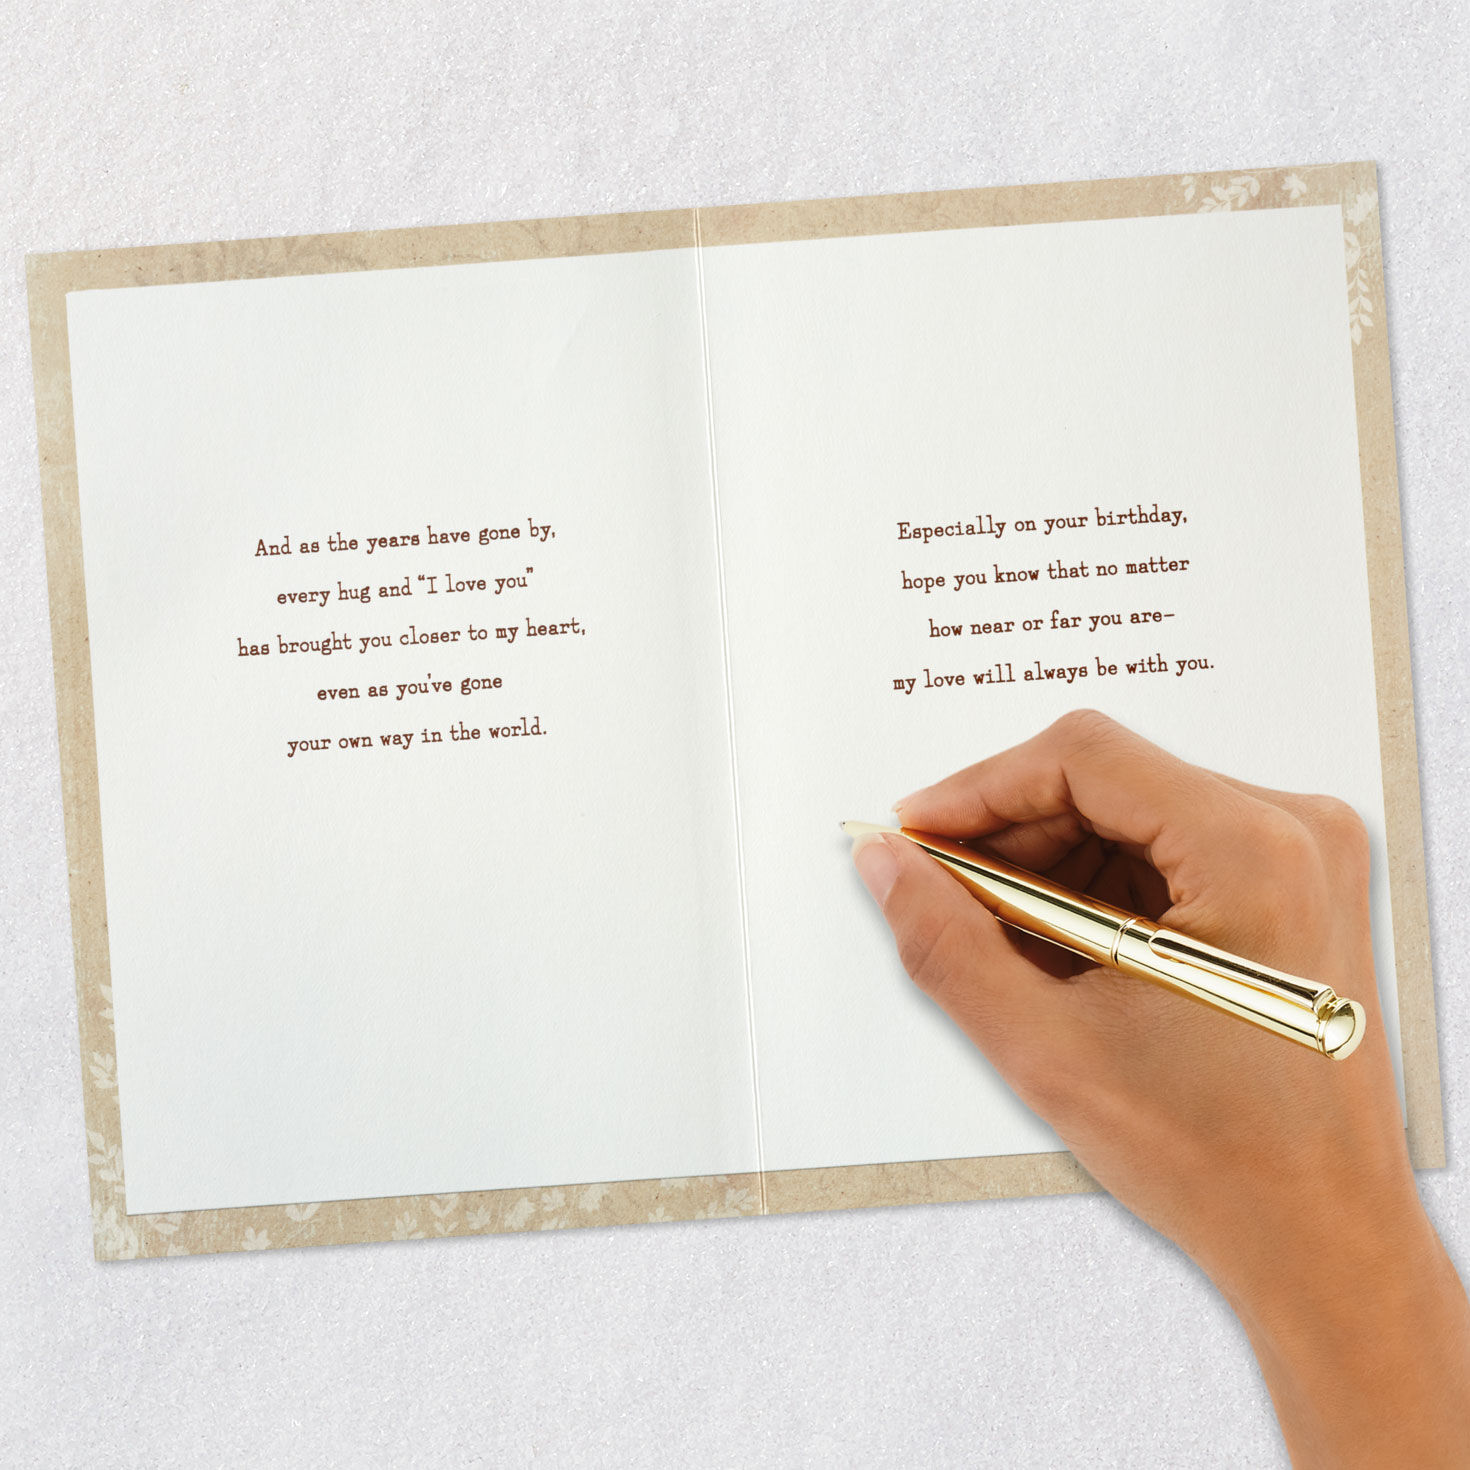 And as the years have gone by,
every hug and “I love you”
has brought you closer to my heart,
even as you've gone
your own way in the world.
Especially on your birthday,
hope you know that no matter
how near or far you are–
my love will always be with you.